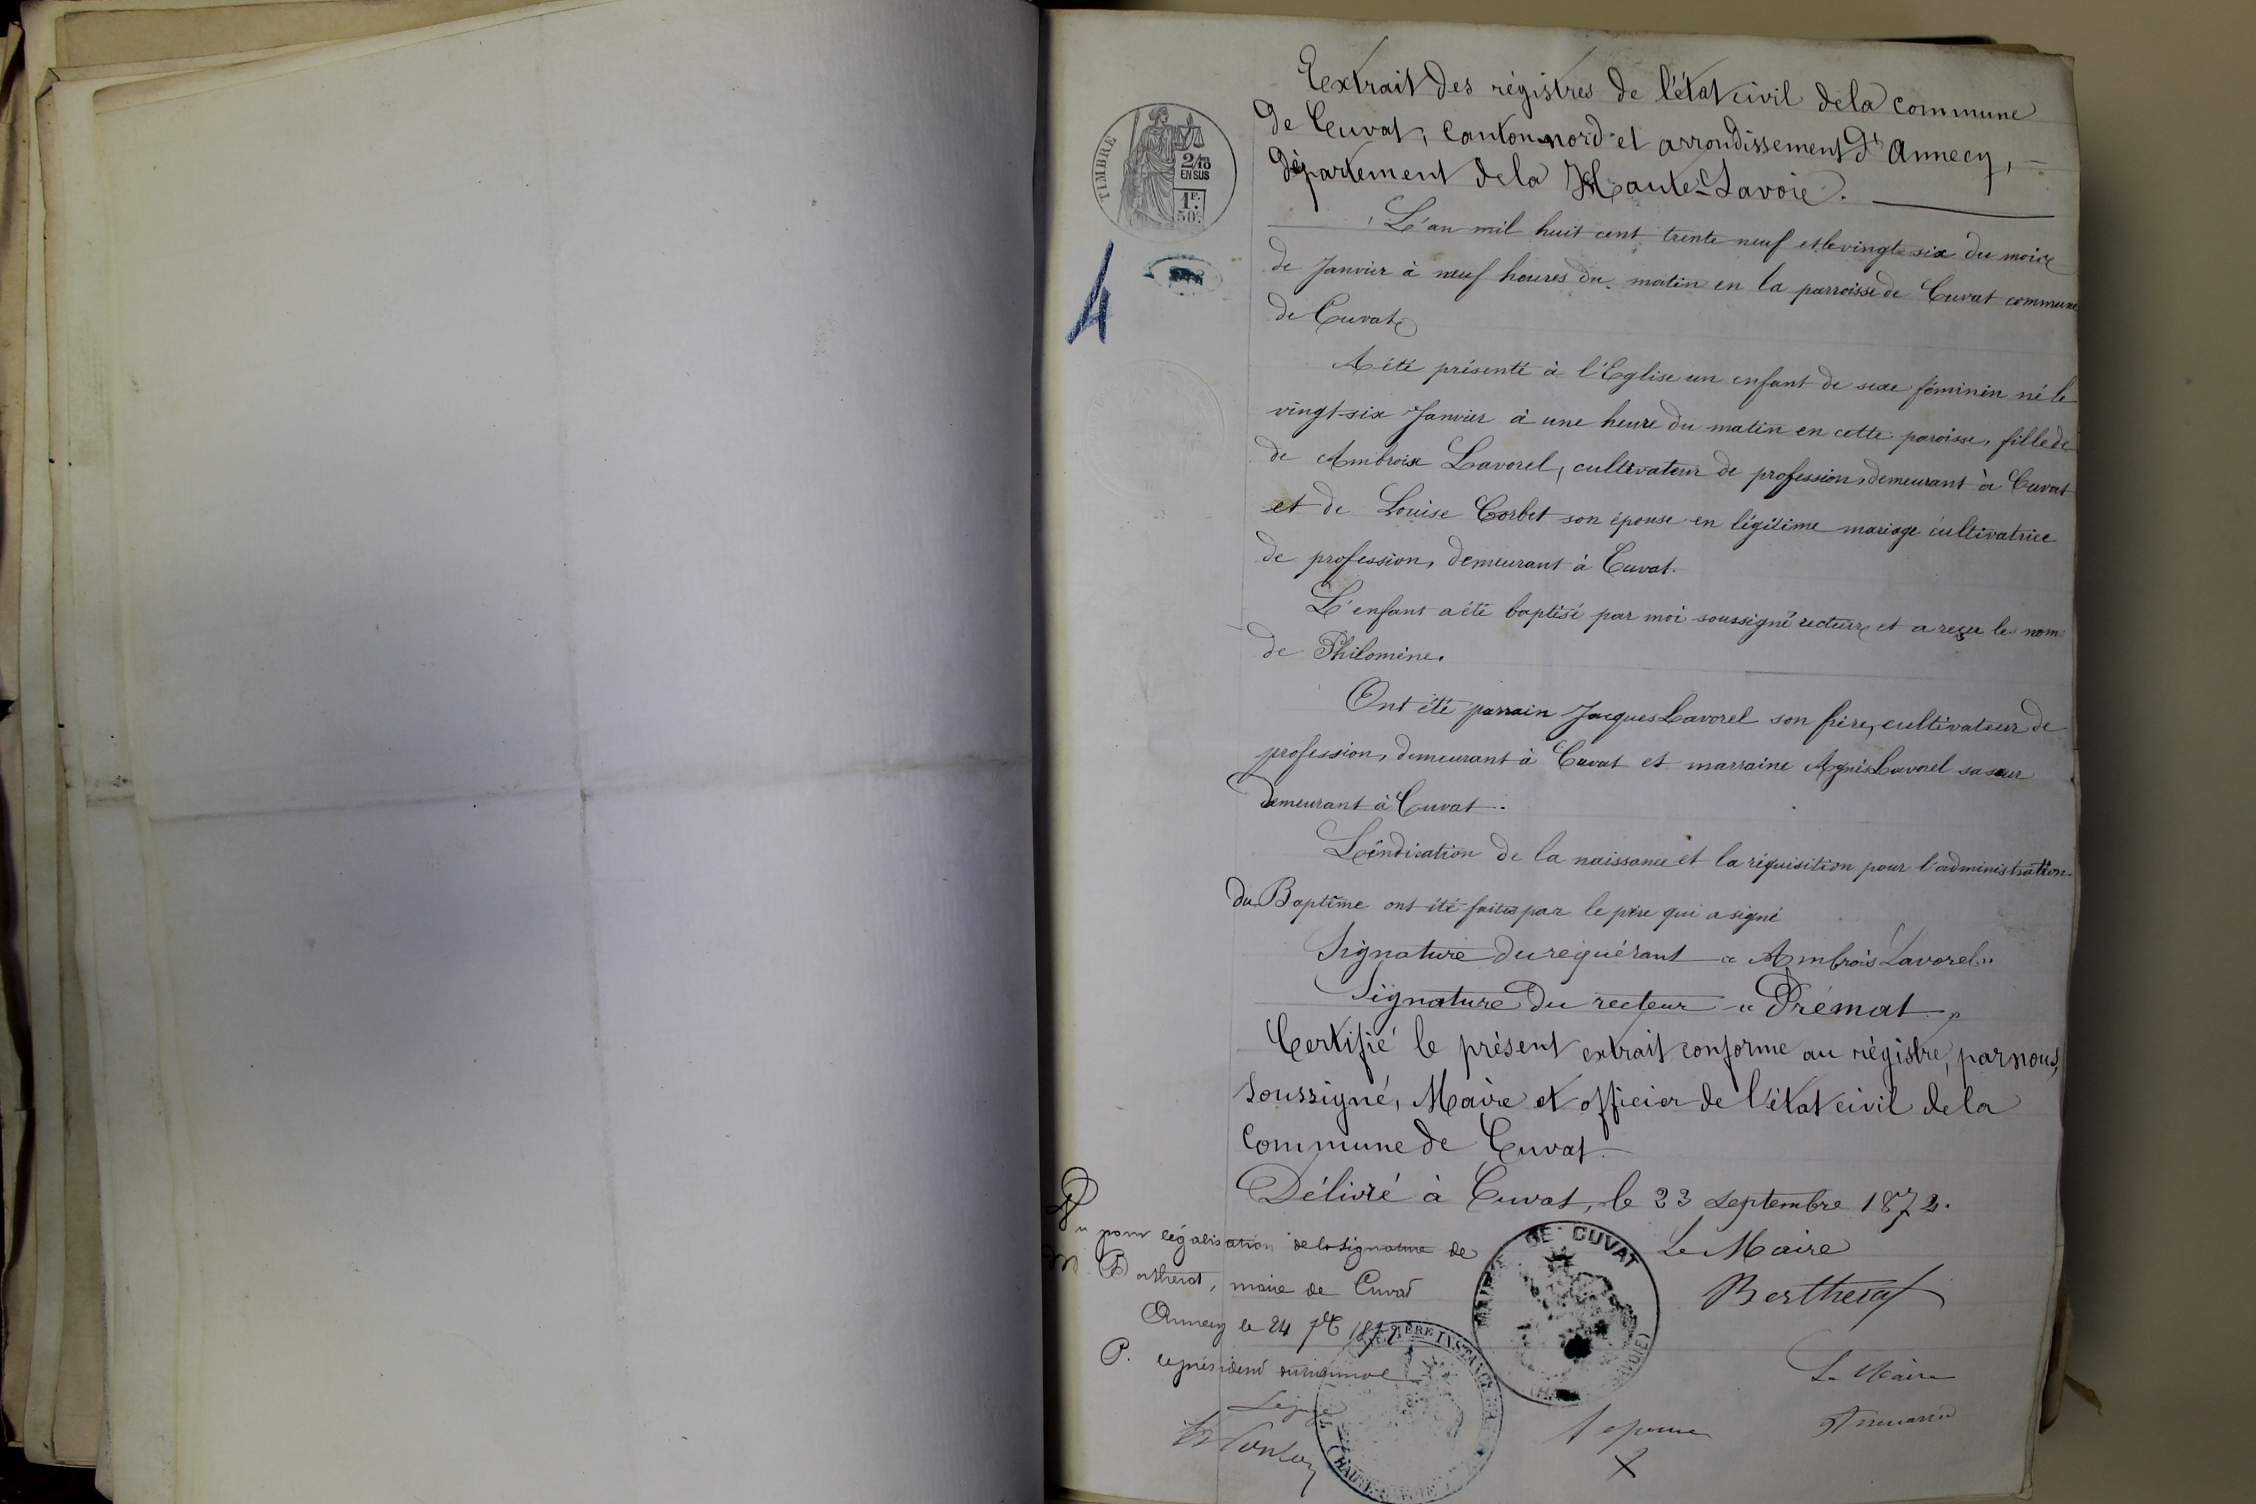 Extrait des régistres de l'état civil de la commune
de Cuvat, canton nord et arrondissement d'Annecy,
département de la Haute-Savoie.
TIMBRE
2/10
EN SUS
1F.
50c.
4
L'an mil huit cent trente neuf et le vingt-six du mois
de Janvier à neuf heures du matin en la parroisse de Cuvat commune
de Cuvat
A été présenté à l'Eglise un enfant de sexe féminin né le
vingt-six Janvier à une heure du matin en cette paroisse, fille de
de Ambroise Lavorel, cultivateur de profession, demeurant à Cuvat
et de Louise Corbet son épouse en légitime mariage cultivatrice
de profession, demeurant à Cuvat.
L'enfant a été baptisé par moi soussigné recteur, et a reçu le nom
de Philomène.
Ont été parrain Jacques Lavorel son frère, cultivateur de
profession, demeurant à Cuvat et marraine Agnès Lavorel sa sœur
demeurant à Cuvat.
L'indication de la naissance et la réquisition pour l'administration
du Baptême ont été faites par le père qui a signé
Signature du requérant « Ambrois Lavorel »
Signature du recteur « Prémat »
Certifié le présent extrait conforme au régistre, par nous,
soussigné, Maire et officier de l'état civil de la
commune de Cuvat.
Délivré à Cuvat, le 23 septembre 1872.
Le Maire
Bertherat
MAIRIE DE CUVAT
(HAUTE SAVOIE)
Vu pour légalisation de la signature de
M. Bertherat, maire de Cuvat
Annecy le 24 7bre 1872
P. le président du tribunal
Le juge
PREMIÈRE INSTANCE
(HAUTE-SAVOIE)
L'épouse
X
Le Maire